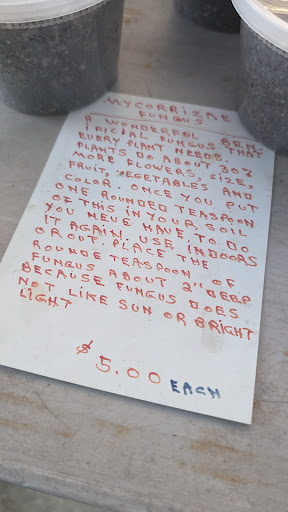 MYCORRIZAE
FUNGUS
A WONDERFUL BEN-
IFICIAL FUNGUS THAT
EVERY PLANT NEEDS.
PLANTS DO ABOUT 30%
MORE FLOWERS, SIZE,
FRUIT, VEGETABLES AND
COLOR. ONCE YOU PUT
ONE ROUNDED TEASPOON
OF THIS IN YOUR SOIL
YOU NEVE HAVE TO DO
IT AGAIN. USE INDOORS
OR OUT. PLACE THE
ROUNDE TEASPOON OF
FUNGUS ABOUT 2" DEEP
BECAUSE FUNGUS DOES
NOT LIKE SUN OR BRIGHT
LIGHT
$5.00 EACH